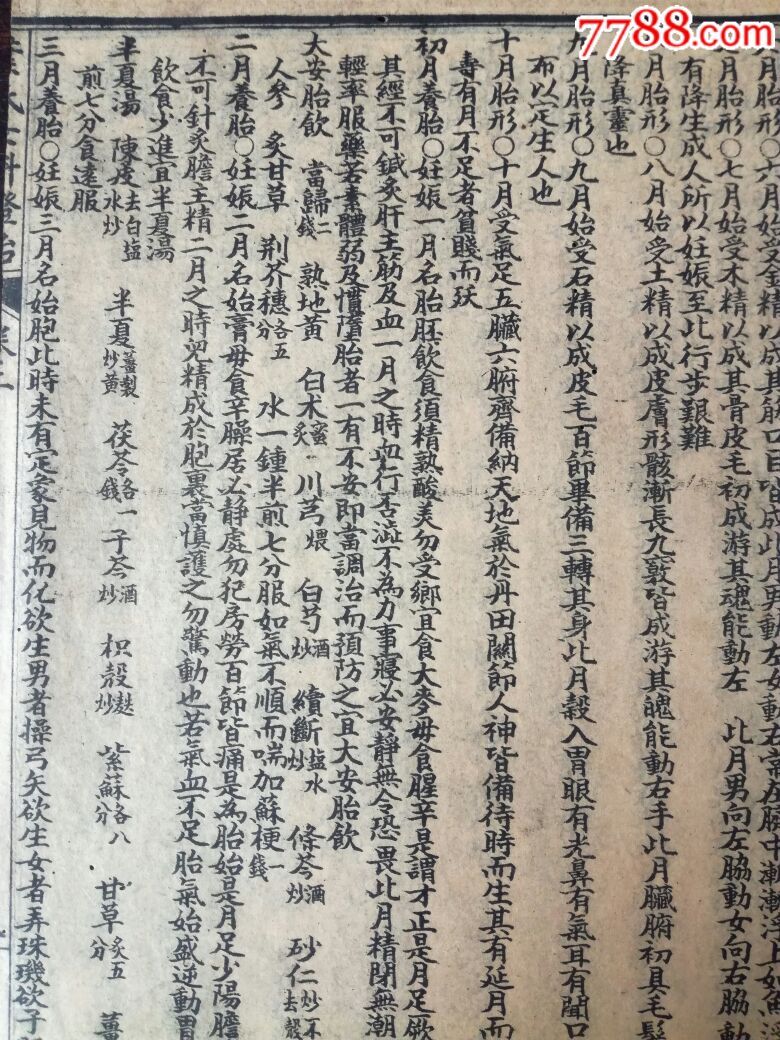 7788.com
六月胎形○六月始受金精以成其筋口目皆成此月男動左女動右當產臍中漸漸浮上如魚浮
七月胎形○七月始受木精以成其骨皮毛初成游其魂能動左 此月男向左脇動女向右脇動
有降生成人所以妊娠至此行步艱難
月胎形○八月始受土精以成皮膚形骸漸長九竅皆成游其魄能動右手此月臟腑初具毛髮
降真靈也
九月胎形○九月始受石精以成皮毛百節畢備三轉其身此月穀入胃眼有光鼻有氣耳有聞口
布以定生人也
十月胎形○十月受氣足五臟六腑齊備納天地氣於丹田關節人神皆備待時而生其有延月而
壽有月不足者貧賤而殀
初月養胎○妊娠一月名胎胚飲食須精熟酸美勿受鄉宜食大麥毋食腥辛是謂才正是月足厥
其經不可鍼炙肝主筋及血一月之時血行否澁不為力事寢必安靜無令恐畏此月精閉無潮
輕率服藥若素體弱及慣墮胎者一有不安即當調治而預防之宜大安胎飲
大安胎飲 當歸二錢 熟地黃 白术蜜炙 川芎煨 白芍酒炒 續斷塩水炒 條芩酒炒 砂仁炒不去殼
人參 炙甘草 荆芥穗各五分 水一鍾半煎七分服如氣不順而喘加蘇梗一錢
二月養胎○妊娠二月名始膏毋食辛臊居必靜處勿犯房勞百節皆痛是為胎始是月足少陽膽
不可針炙膽主精二月之時兒精成於胞裏當慎護之勿驚動也若氣血不足胎氣始盛逆動胃
飲食少進宜半夏湯
半夏湯 陳皮去白塩水炒 半夏薑製炒黃 茯苓各一錢 子芩酒炒 枳殼麩炒 紫蘇各八分 甘草炙五分 薑
煎七分食遠服
三月養胎○妊娠三月名始胞此時未有定象見物而化欲生男者操弓矢欲生女者弄珠璣欲子
氏女科證治